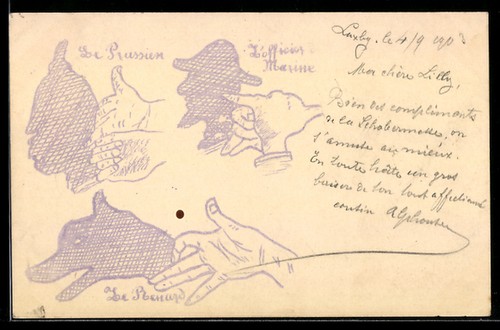 Le Prussien
L'officier
Marine
Le Renard
le 4/9 190
Ma chère Lilly,
Bien des compliments
de la on
s'amuse au mieux.
En toute hâte un gros
baiser de ton tout affectionné
cousin Alphonse